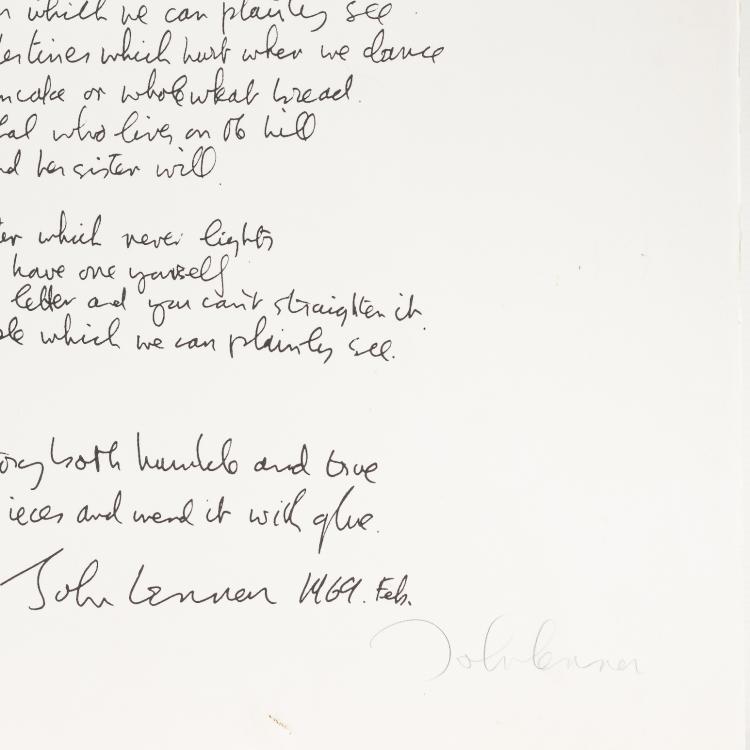 which we can plainly see
which hurt when we dance
or wholewheat bread.
who lives on the hill
her sister will.
which never lights
have one yourself
letter and you can't straighten it.
which we can plainly see.
both humble and true
and mend it with glue.
John Lennon 1969. Feb.
John Lennon